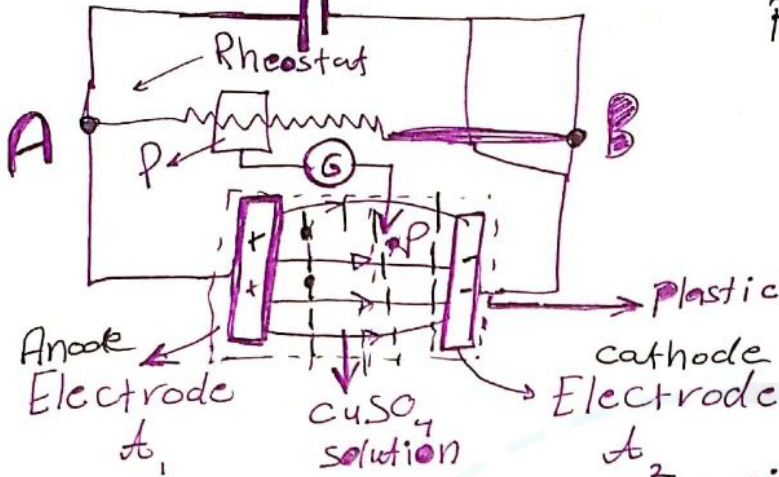 Rheostat
A
B
P
G
P
+
-
+
-
Plastic
Anode
Electrode
A1
CuSO4
solution
cathode
Electrode
A2